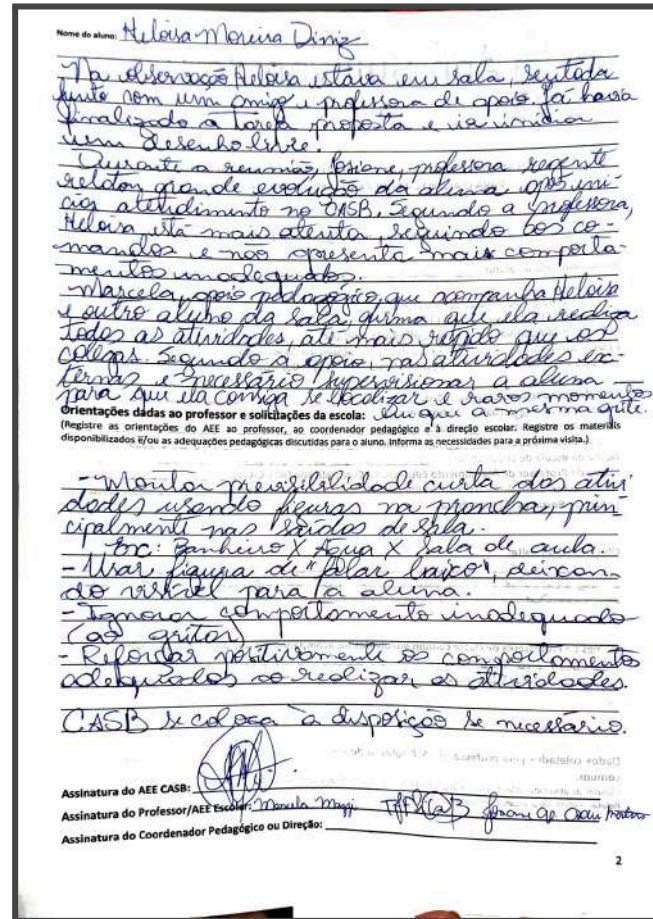 Nome do aluno: Heloisa Moreira Diniz
Na observação Heloisa estava em sala, sentada
junto com um amigo e professora de apoio. Já havia
finalizado a tarefa proposta e iria iniciar
um desenho livre.
Durante a reunião, Josiane, professora regente
relatou grande evolução da aluna após iní-
cios atendimento no CASB. Segundo a professora,
Heloisa está mais atenta, seguindo aos co-
mandos e não apresenta mais comporta-
mentos inadequados.
Marcela, apoio pedagógico, que acompanha Heloisa
e outro aluno da sala, afirma que ela realiza
todos as atividades, até mais rápido que os
colegas. Segundo a apoio, nas atividades ex-
ternas é necessário supervisionar a aluna
para que ela consiga se localizar e raros momentos
em que a mesma grite.
Orientações dadas ao professor e solicitações da escola:
(Registre as orientações do AEE ao professor, ao coordenador pedagógico e à direção escolar. Registre os materiais
disponibilizados e/ou as adequações pedagógicas discutidas para o aluno. Informa as necessidades para a próxima visita.)
- Montar previsibilidade curta das ativi
dades usando figuras na prancha, prin-
cipalmente nas saídas de sala.
Ex: Banheiro X Água X Sala de aula.
- Usar figura de "falar baixo", deixan-
do visível para a aluna.
- Ignorar comportamento inadequado
(ao gritar)
- Reforçar positivamente os comportamentos
adequados ao realizar as atividades.
CASB se coloca à disposição se necessário.
Assinatura do AEE CASB:
Assinatura do Professor/AEE Escolar: Marcela
Assinatura do Coordenador Pedagógico ou Direção:
2